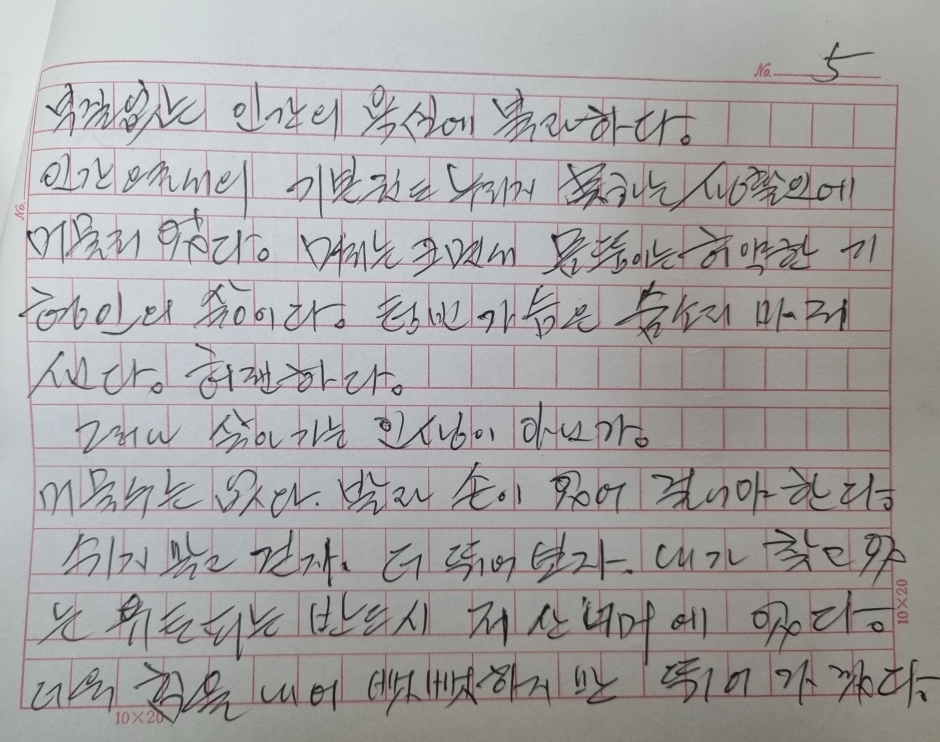 No. 5
인간의 욕심에 불과하다.
인간으로서의 기본권도 누리지 못하는 생활인에
머물러 있다. 머리는 표면에 몸뚱이는 허약한 기
형인의 삶이다. 텅빈 가슴은 숨소리 마저
시다. 허랜하다.
그러나 살아가는 인생이 아닌가.
머물수는 없다. 발과 손이 있어 걸어야 한다.
쉬지 말고 걷자. 더 뛰어 보자. 내가 찾고 있
는 반드시 저 산 너머에 있다.
더욱 힘을 내어 뛰어 가겠다.
10×20
10×20
No.